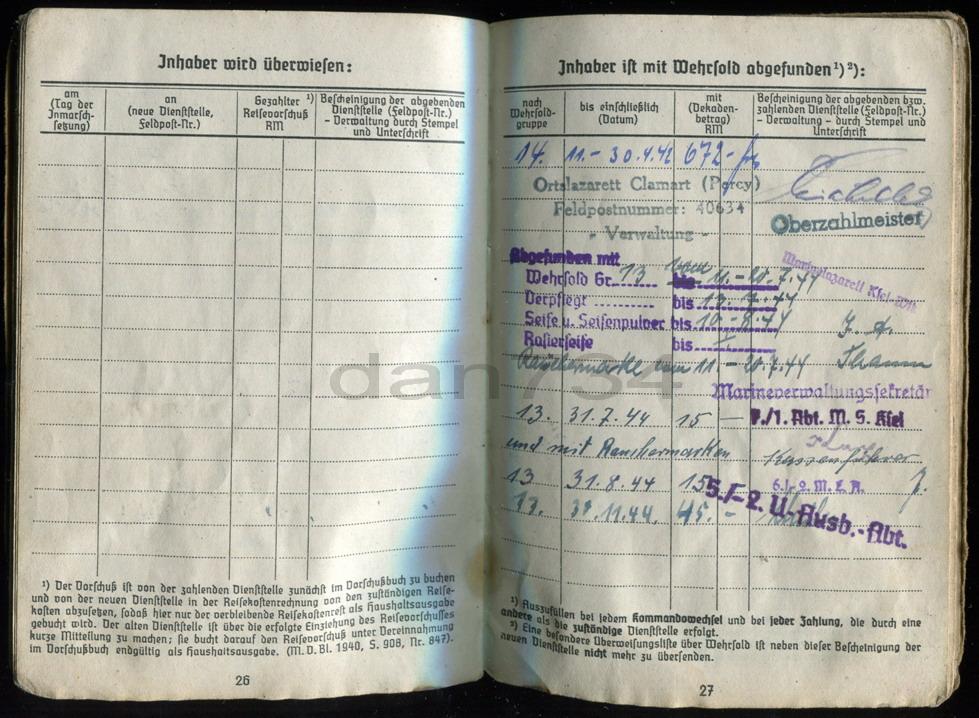 Inhaber wird überwiesen:
am
(Tag der
Inmarsch-
setzung)
an
(neue Dienststelle,
Feldpost-Nr.)
Gezahlter ¹)
Reisevorschuß
RM
Bescheinigung der abgebenden
Dienststelle (Feldpost-Nr.)
– Verwaltung – durch Stempel
und Unterschrift
¹) Der Vorschuß ist von der zahlenden Dienststelle zunächst im Vorschußbuch zu buchen
und von der neuen Dienststelle in der Reisekostenrechnung von den zuständigen Reise-
kosten abzusetzen, sodaß hier nur der verbleibende Reisekostenrest als Haushaltsausgabe
gebucht wird. Der alten Dienststelle ist über die erfolgte Einziehung des Reisevorschusses
kurze Mitteilung zu machen; sie bucht darauf den Reisevorschuß unter Vereinnahmung
im Vorschußbuch endgültig als Haushaltsausgabe. (M. D. Bl. 1940, S. 908, Nr. 847).
26
Inhaber ist mit Wehrsold abgefunden¹)²):
nach
Wehrsold-
gruppe
bis einschließlich
(Datum)
mit
(Dekaden-
betrag)
RM
Bescheinigung der abgebenden bzw.
zahlenden Dienststelle (Feldpost-Nr.)
– Verwaltung – durch Stempel und
Unterschrift
14. 11.– 30.4.42 672–
Ortslazarett Clamart (Percy)
Feldpostnummer: 40634
- Verwaltung -
Oberzahlmeister
Abgefunden mit
Wehrsold Gr. 13 vom 11.–20.7.44
Marinelazarett Kiel-Wik
Verpflegt bis
Seife u. Seifenpulver bis
Rasierseife bis
11.–20.7.44
Marineverwaltungssekretär
13. 31.7.44 15 – F./1. Abt. M. S. Kiel
und mit Rauchermarken Kassenführer
13 31.8.44 15
5./–2. U.-Ausb.-Abt.
45.–
¹) Auszufüllen bei jedem Kommandowechsel und bei jeder Zahlung, die durch eine
andere als die zuständige Dienststelle erfolgt.
²) Eine besondere Überweisungsliste über Wehrsold ist neben dieser Bescheinigung der
neuen Dienststelle nicht mehr zu übersenden.
27
dan734